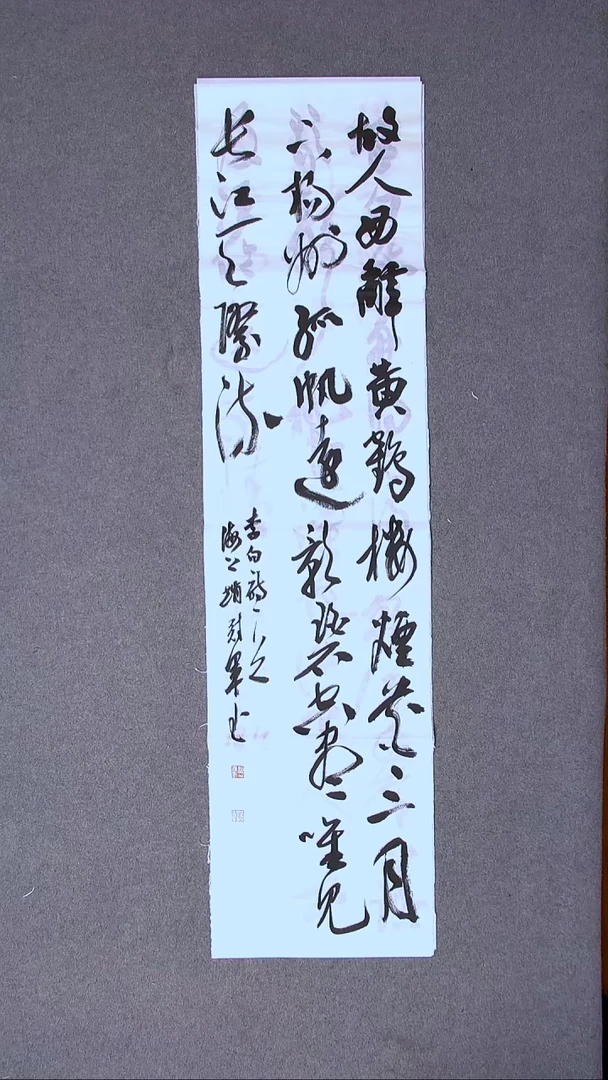 故人西辭黃鶴樓煙花三月
下揚州孤帆遠影碧空盡唯見
长江天際流
李白詩一首
海上